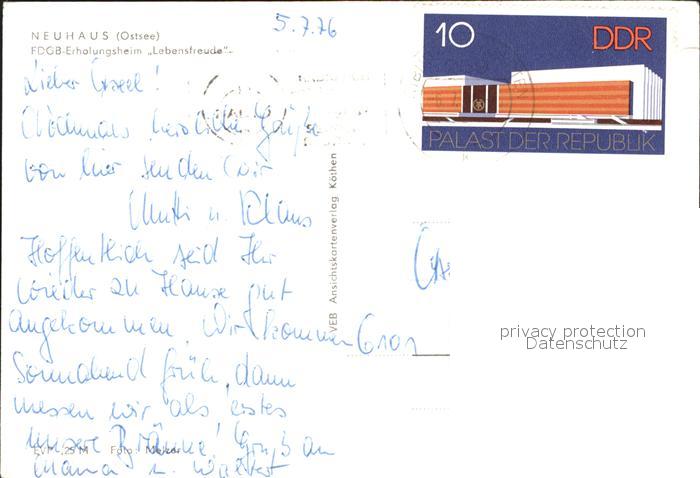 NEUHAUS (Ostsee)
FDGB-Erholungsheim „Lebensfreude"
5.7.76
10 DDR
PALAST DER REPUBLIK
Lieber
Nochmals herzliche Grüße
von hier senden wir
Mutti u. Klaus
Hoffentlich seid Ihr
wieder zu Hause gut
angekommen. Wir kommen
Sonnabend früh, dann
messen wir als erstes
unsere Bräune! Gruß an
Mama u.
EVP -,25 M Foto:
VEB Ansichtskartenverlag Köthen
6101
privacy protection
Datenschutz